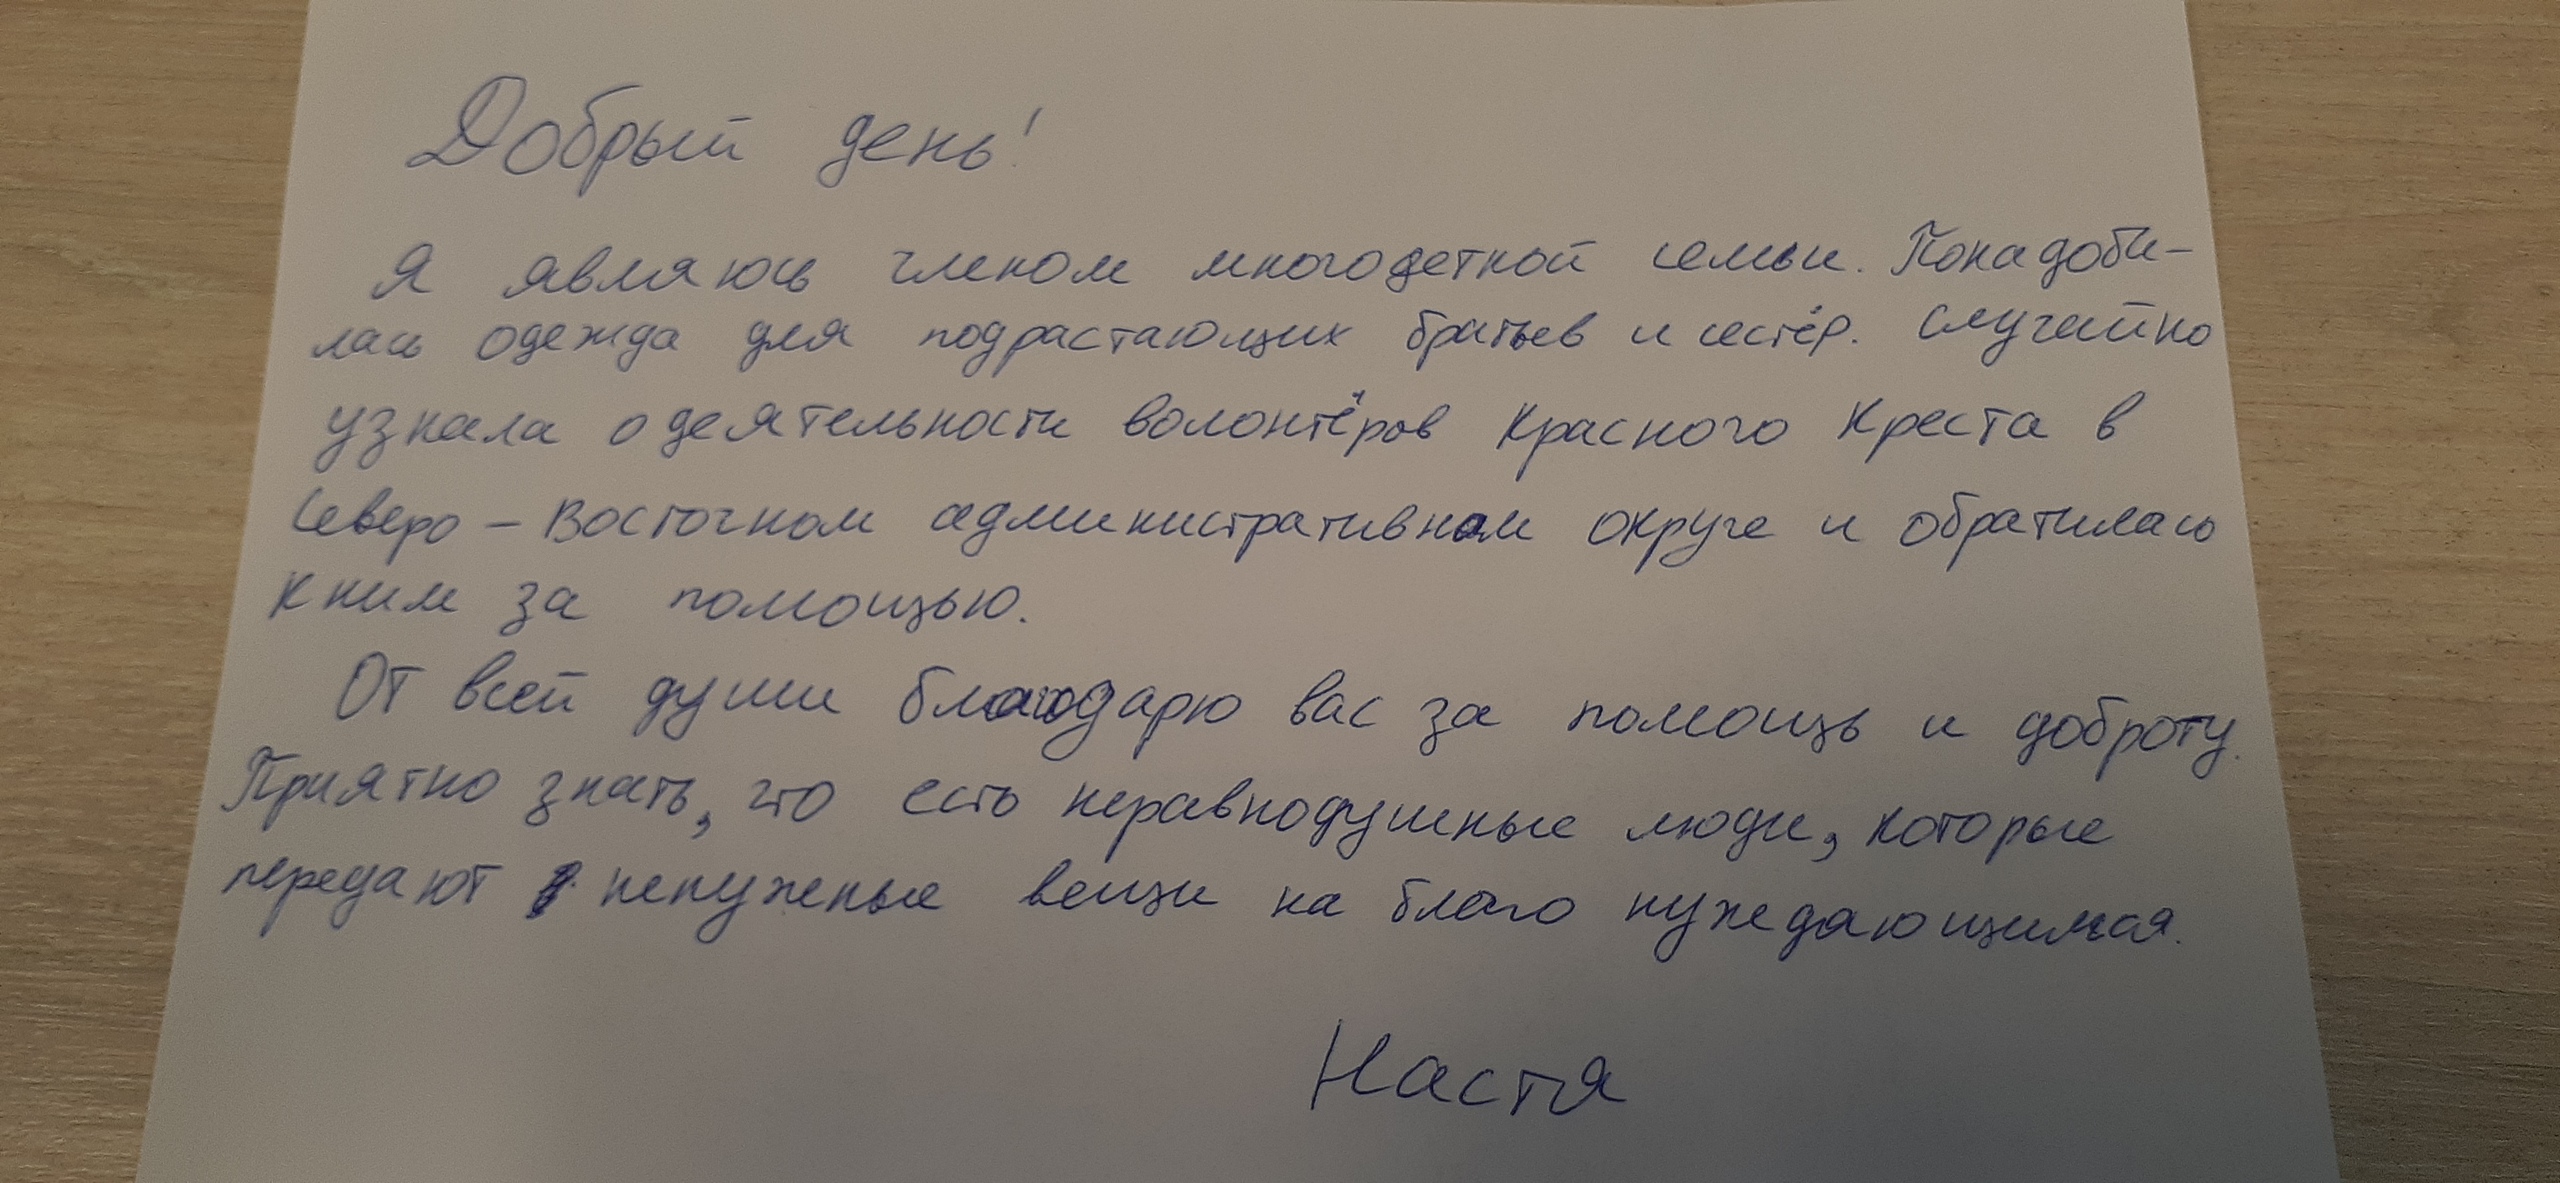 Добрый день!
Я являюсь членом многодетной семьи. Понадоби-
лась одежда для подрастающих братьев и сестёр. Случайно
узнала о деятельности волонтёров Красного Креста в
Северо - Восточном административном округе и обратилась
к ним за помощью.
От всей души благодарю вас за помощь и доброту.
Приятно знать, что есть неравнодушные люди, которые
передают ненужные вещи на благо нуждающимся.
Настя